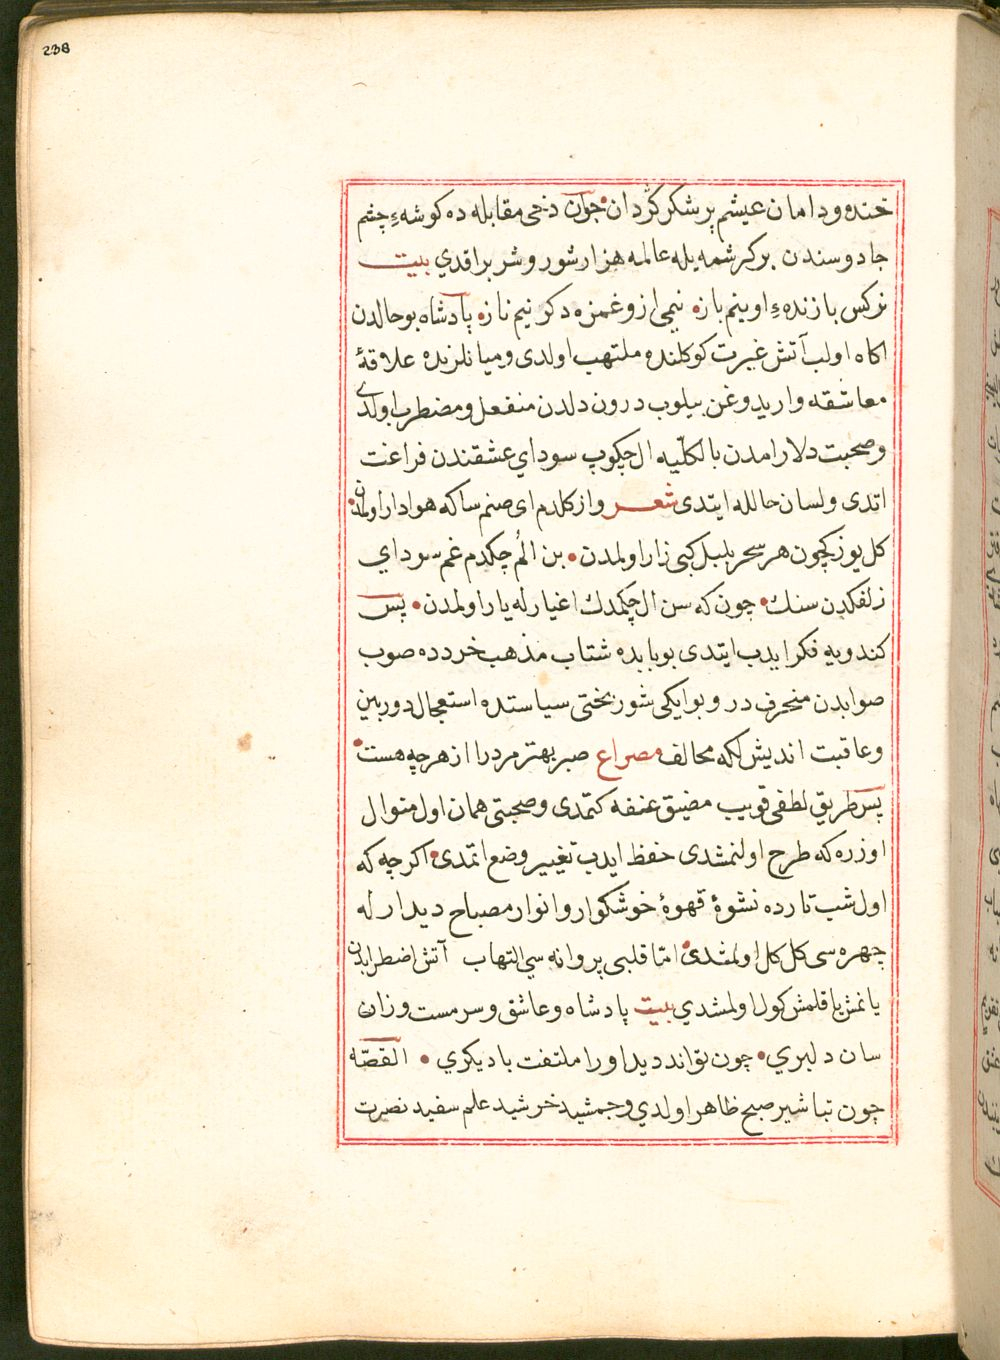 238
خنده و دامان عیشم پر شکر گردان • جوان دخی مقابله ده کوشهٔ چشم
جادوسندن بر کرشمه یله عالمه هزار شور و شر براقدي بیت
نرکس بازندهٔ او نیم باز • نیمی از و غمزه دکر نیم ناز • پادشاه بو حالدن
اکاه اولب آتش غیرت کوکلنده ملتهب اولدی و میانلرنده علاقهٔ
معاشقه وار یدوغن بیلوب درون دلدن منفعل و مضطرب اولدی
و صحبت دلارامدن بالکلّیه ال چکوپ سودای عشقندن فراغت
اتدی ولسان حالله ایتدی شعر واز کلدم ای صنم ساکه هوادار اولمدن •
کل یوزکچون هر سحر بلبل کبی زار اولمدن • بن الُم چکدم غم سودای
زلفکدن سنك • چون که سن ال چکمدك اغیارله یار اولمدن • پس
کندویه فکر ایدب ایتدی بو بابده شتاب مذهب خردده صوب
صوابدن منحرف در و بو ایکی شوربختی سیاستده استعجال دوربین
وعاقبت اندیش لکه مخالف مصراع صبر بهتر مردرا از هرچه هست •
پس طریق لطفی قویب مضیق عنفه کتمدی و صحبتی همان اول منوال
اوزره که طرح اولنمشدی حفظ ایدب تغییر وضع اتمدی • اکرچه که
اول شب تارده نشوهٔ قهوهٔ خوشکوار و انوار مصباح دیدارله
چهره سی کل کل اولمشدی • امّا قلبی پروانه سي التهاب آتش اضطرابدن
یانمش یاقلمش کول اولمشدي بیت پادشاه و عاشق و سرمست وزان
سان دلبري • چون تواند دید اورا ملتفت با دیکري • القصّه
چون تباشیر صبح ظاهر اولدي و جمشید خرشید علم سفید نصرت